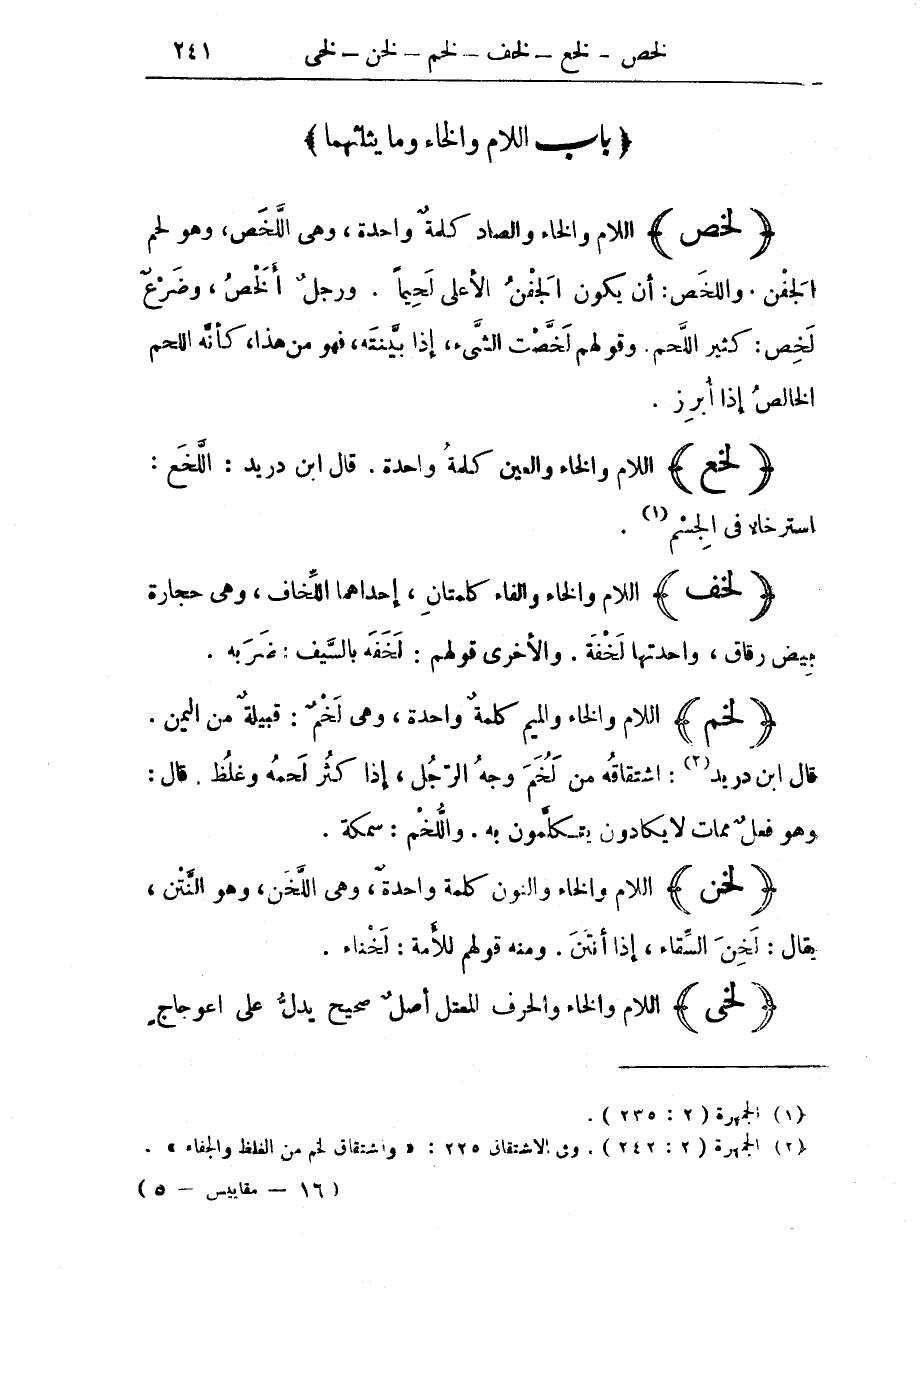 لخص – لخع – لخف – لخم – لخن – لخى ٢٤١
﴿ باب اللام والخاء وما يثلثهما ﴾
﴿ لخص ﴾ اللام والخاء والصاد كلمةٌ واحدة ، وهى اللَّخَص، وهو لحم
الجفْن . واللخَص: أن يكون الجفْنُ الأعلى لَحِيماً . ورجلٌ ألْخصُ ، وضَرْعٌ
لَخِص: كثير اللَّحم. وقولهم لَخَّصْت الشَّىء، إذا بيَّنتَه، فهو من هذا، كأنَّه اللحم
الخالصُ إذا أُبرِز .
﴿ لخع ﴾ اللام والخاء والعين كلمةُ واحدة . قال ابن دريد : اللَّخَع :
استرخاء فى الجِسْم(١) .
﴿ لخف ﴾ اللام والخاء والفاء كلمتانِ ، إحداهما اللِّخاف ، وهى حجارة
بِيض رقاق ، واحدتها لَخْفَة . والأخرى قولهم : لَخَفَه بالسَّيف : ضَرَبه .
﴿ لخم ﴾ اللام والخاء والميم كلمةٌ واحدة ، وهى لَخْمٌ : قبيلةٌ من اليمن .
قال ابن دريد(٢) : اشتقاقُه من لَخُمَ وجهُ الرّجُل ، إذا كثُر لَحمُه وغلُظ . قال :
وهو فعلٌ ممات لا يكادون يتكلَّمون به . واللُّخْم : سمكة .
﴿ لخن ﴾ اللام والخاء والنون كلمة واحدةٌ ، وهى اللَّخَن، وهو النَّتْن ،
يقال : لَخِنَ السِّقاء ، إذا أنتَنَ . ومنه قولهم للأَمة : لَخْناء .
﴿ لخى ﴾ اللام والخاء والحرف المعتل أصلٌ صحيح يدلُّ على اعوجاجٍ
(١) الجمهرة ( ٢ : ٢٣٥ ) .
(٢) الجمهرة ( ٢ : ٢٤٢ ) . وفى الاشتقاق ٢٢٥ : « واشتقاق لخم من الغلظ والجفاء » .
( ١٦ – مقاييس – ٥ )